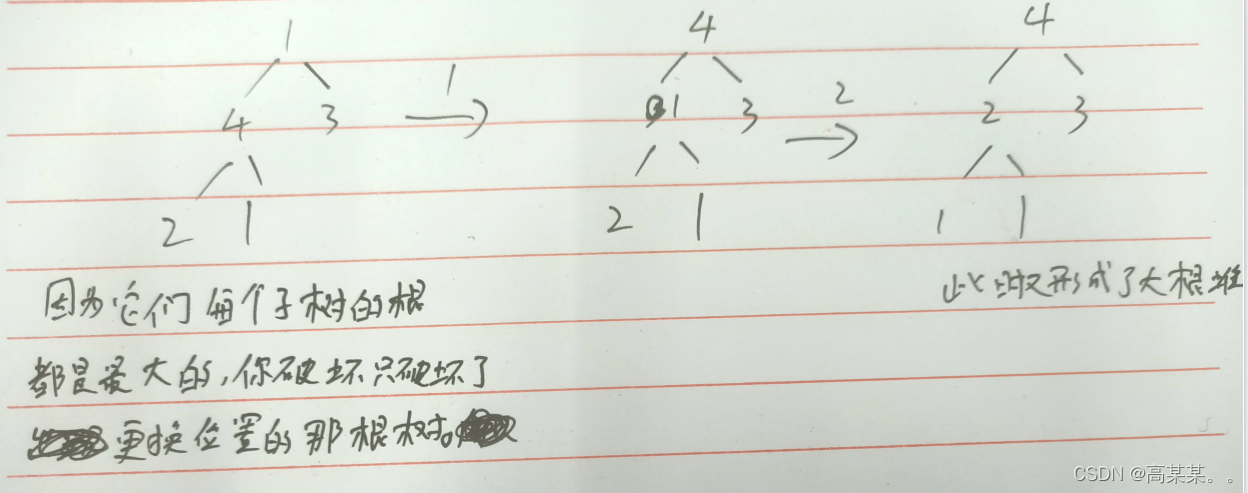 1 4 4
4 3 1 1 3 2 2 3
2 1 2 1 1 1
因为它们每个子树的根
此时又形成了大根堆
都是最大的,你破坏只破坏了
更换位置的那根树。
CSDN @高某某。。